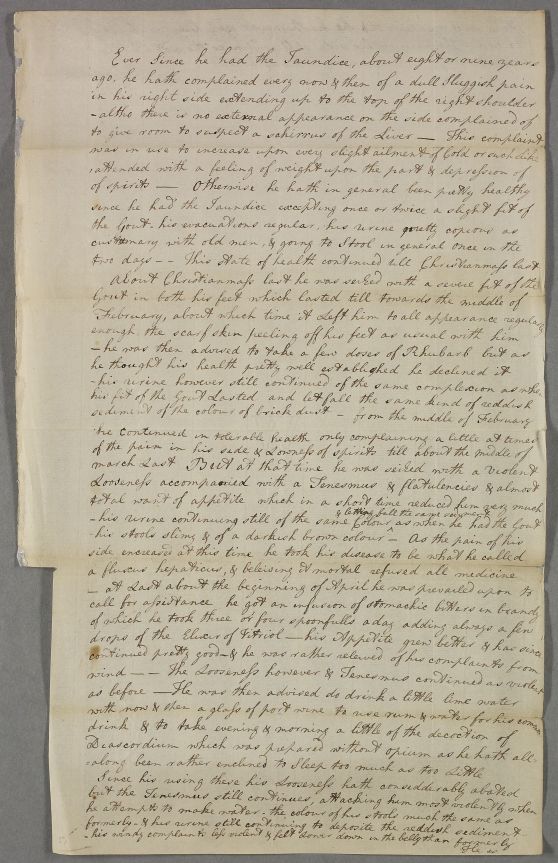 Ever Since he had the Jaundice, about eight or nine years
ago, he hath complained every now & then of a dull Sluggish pain
in his right side extending up to the top of the right shoulder
- altho there is no external appearance on the side complained of
to give room to suspect a schirrus of the Liver — This complaint
was in use to increase upon every slight ailment of Cold or such like
& attended with a feeling of weight upon the part & depression of
of spirits — Otherwise he hath in general been pretty healthy
since he had the Jaundice excepting once or twice a slight fit of
the Gout - his evacuations regular, his urine pretty copious as
customary with old men, & going to Stool in general once in the
two days - - This State of health continued till Christianmass last
About Christianmass last he was seized with a severe fit of the
Gout in both his feet which lasted till towards the middle of
February, about which time it Left him to all appearance regularly
enough the scarf skin peeling off his feet as usual with him
- he was then advised to take a few doses of Rhubarb but as
he thought his health pretty well established he declined it
- his urine however still continued of the same complexion as when
his fit of the Gout Lasted and let fall the same kind of reddish
sediment of the colour of brick dust - from the middle of February
he continued in tolerable health only complaining a little at times
of the pain in his side & Lowness of spirits till about the middle of
march Last But at that time he was seized with a violent
Looseness accompanied with a Tenesmus & flatulencies & almost
total want of appetite which in a short time reduced him very much
& letting fall the same sediment
- his urine continuing still of the same Colour as when he had the Gout
- his stools sling & of a darkish brown colour - As the pain of his
side encreased at this time he took his disease to be what he called
a fluxus hepaticus, & beleiving it mortal refused all medicine
- at Last about the beginning of April he was prevailed upon to
call for assistance he got an infusion of stomachic bitters in brandy
of which he took three or four spoonfulls a day adding always a few
drops of the Elixir of Vitriol — his Appetite grew better & has since
continued pretty good - & he was rather releived of his complaints from
wind - - The Looseness however & Tenesmus continued as violent
as before — He was then advised do drink a little lime water
with now & then a glass of port wine to use rum & water for his common
drink & to take evening & morning a little of the decoction of
Diascordium which was prepared without opium as he hath all
along been rather enclined to Sleep too much as too Little
Since his using these his Looseness hath considderably abated
but the Tenesmus still continues, attacking him most violently when
he attempts to make water - the colour of his stools much the same as
formerly - & his urine still continuing to deposite the reddish sediment
- his windy complaints less violent & felt lower down in the belly than formerly